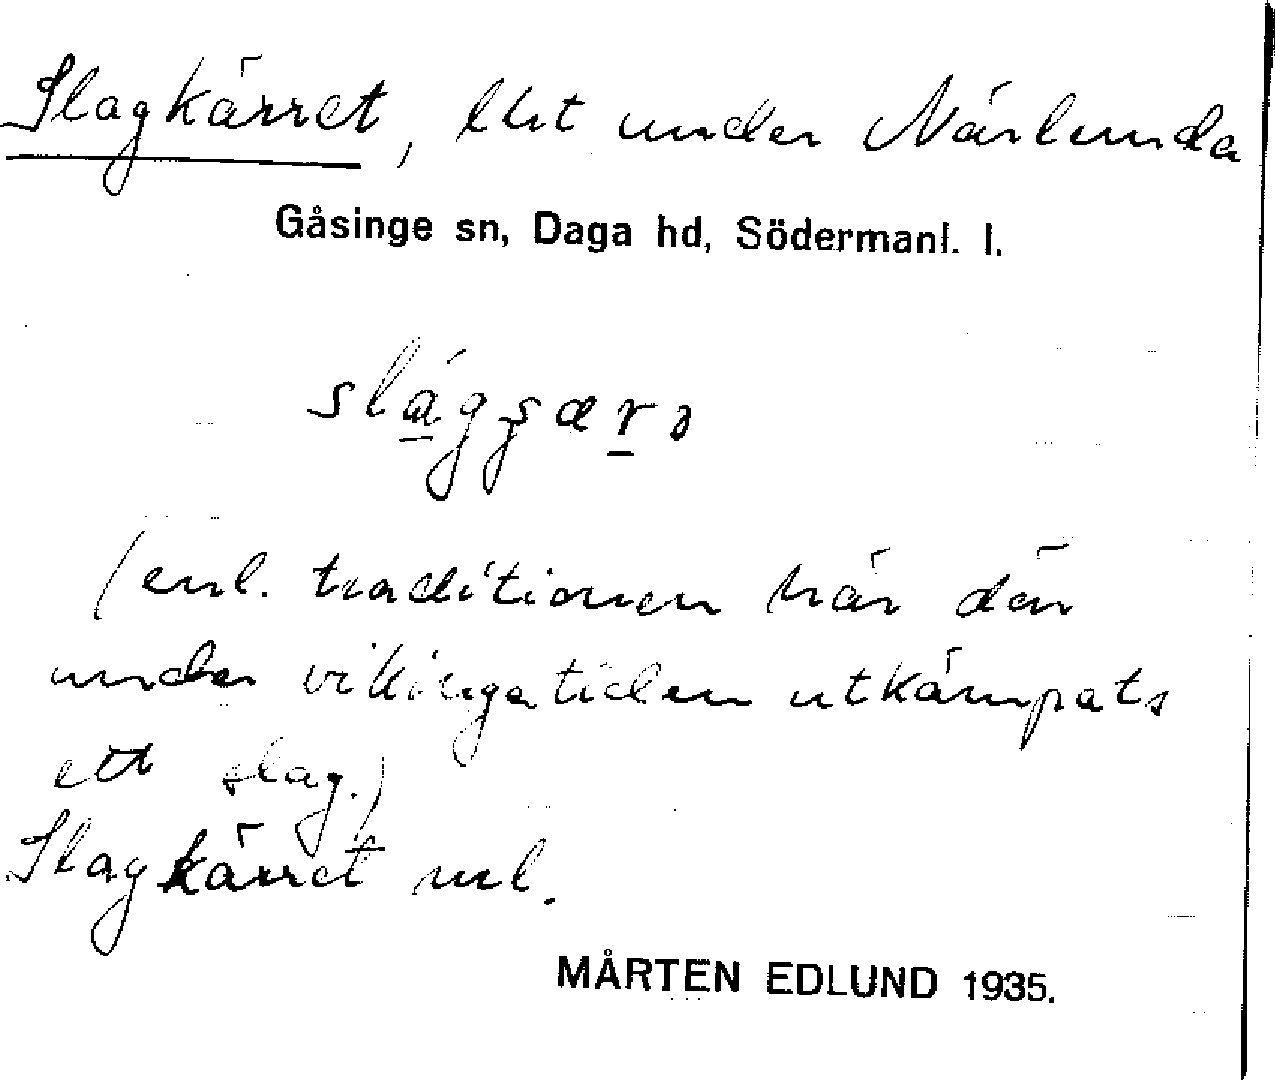 Slagkärret, lht under Närlunda
Gåsinge sn, Daga hd, Södermanl. l.
(enl. traditionen här där
under vikingatiden utkämpats
ett slag.)
Slagkärret ml.
MÅRTEN EDLUND 1935.